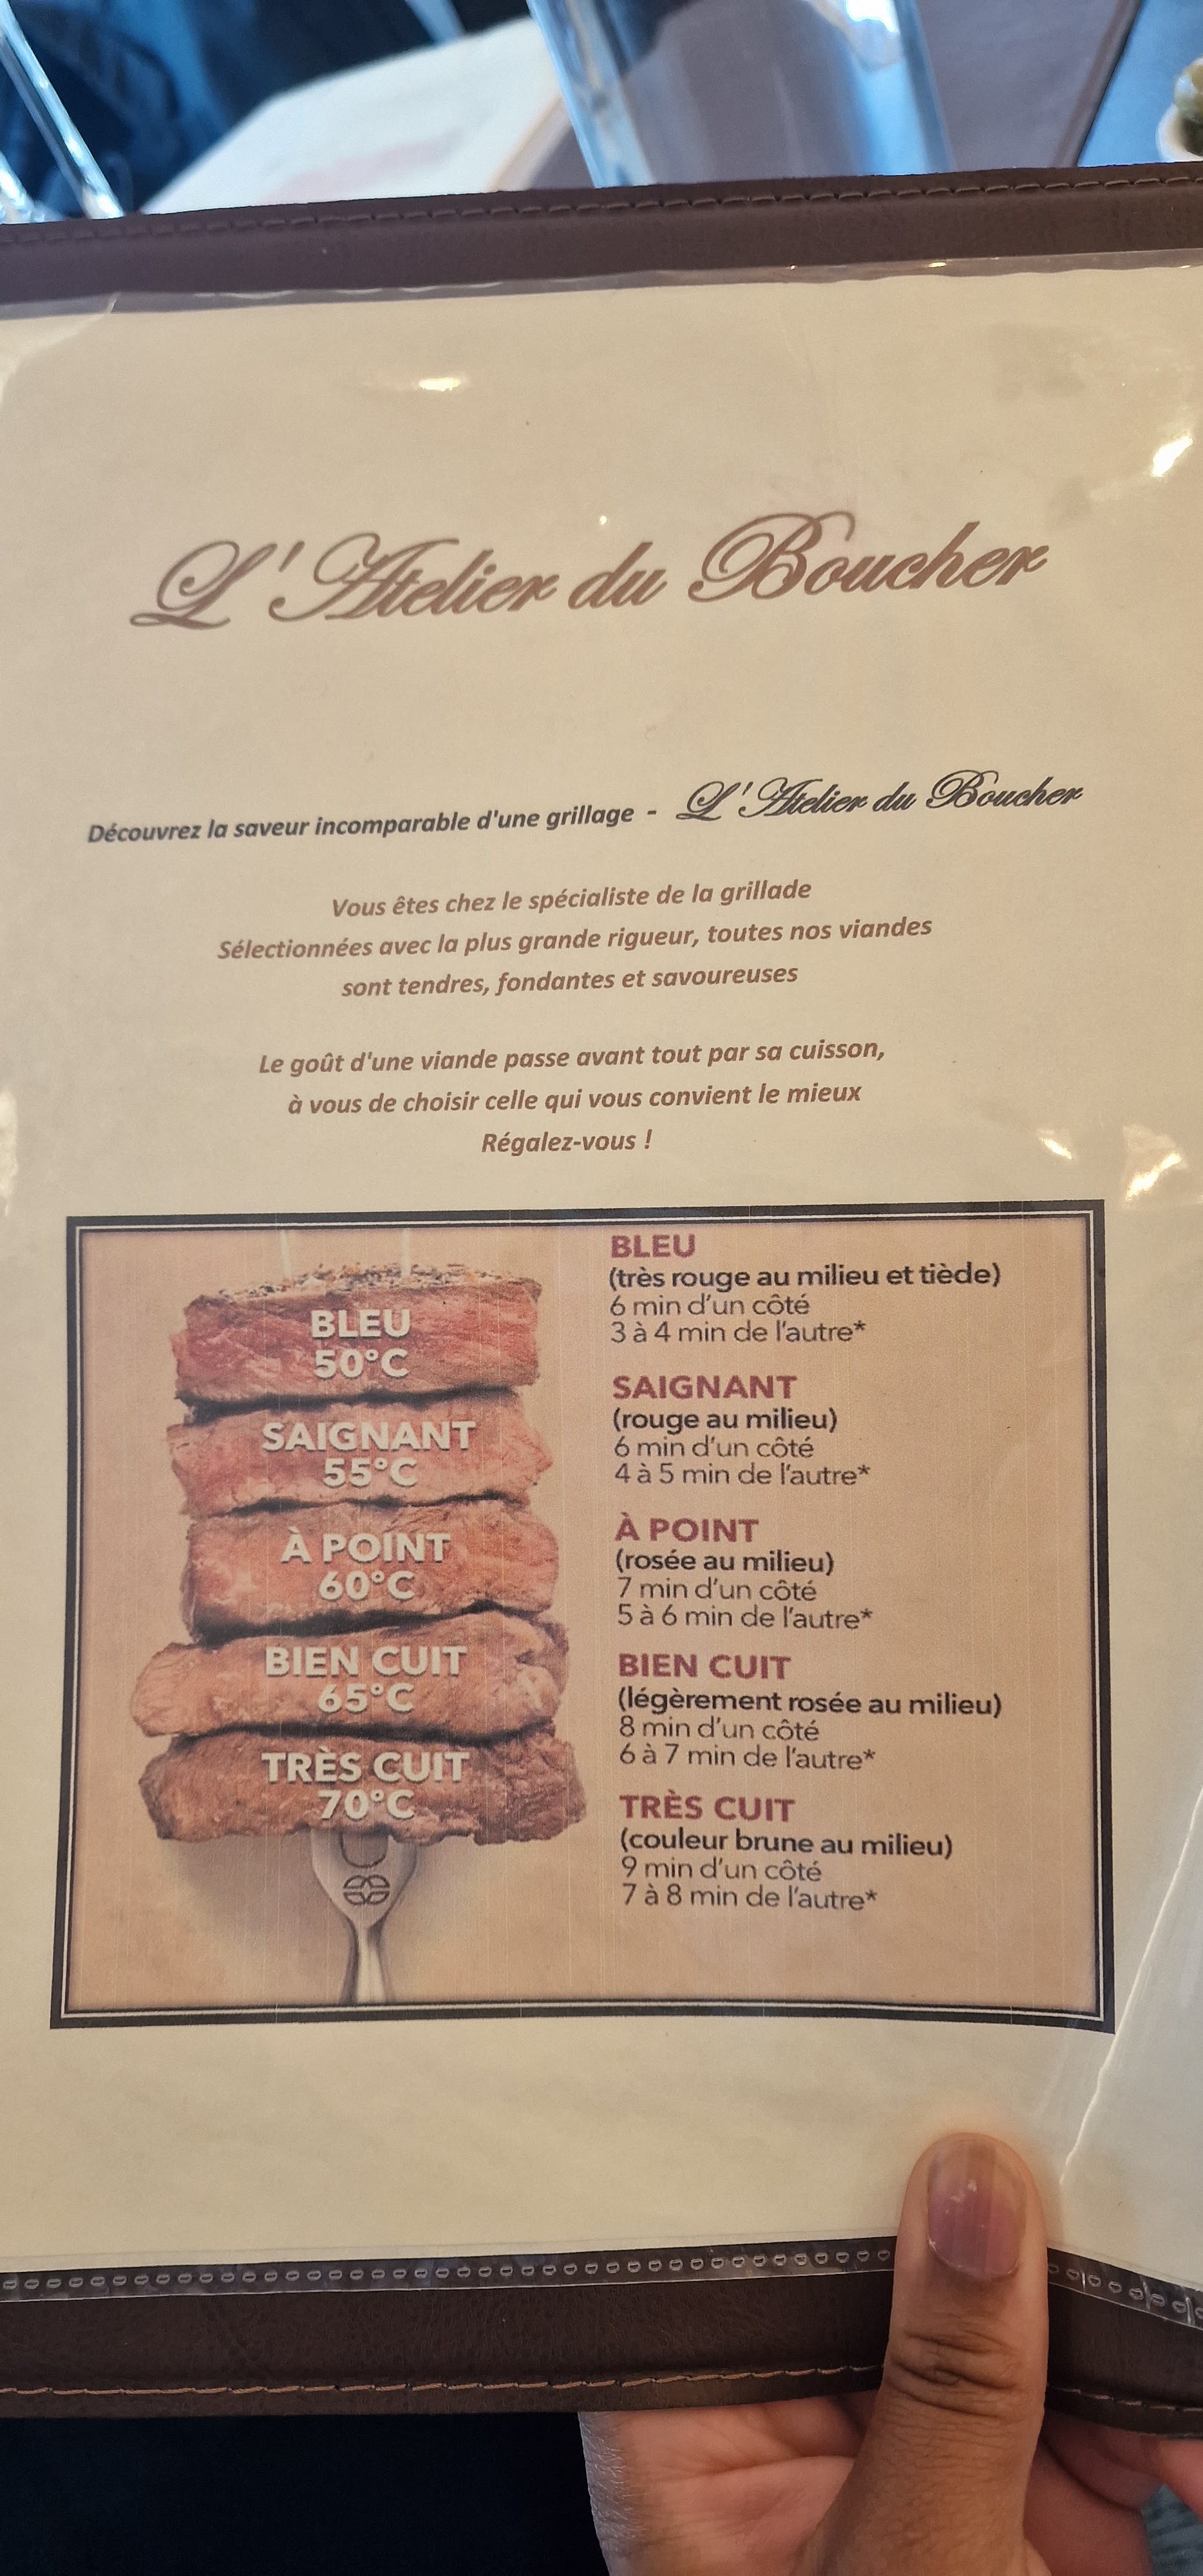 L'Atelier du Boucher
Découvrez la saveur incomparable d'une grillage - L'Atelier du Boucher
Vous êtes chez le spécialiste de la grillade
Sélectionnées avec la plus grande rigueur, toutes nos viandes
sont tendres, fondantes et savoureuses
Le goût d'une viande passe avant tout par sa cuisson,
à vous de choisir celle qui vous convient le mieux
Régalez-vous !
BLEU
50°C
SAIGNANT
55°C
À POINT
60°C
BIEN CUIT
65°C
TRÈS CUIT
70°C
BLEU
(très rouge au milieu et tiède)
6 min d'un côté
3 à 4 min de l'autre*
SAIGNANT
(rouge au milieu)
6 min d'un côté
4 à 5 min de l'autre*
À POINT
(rosée au milieu)
7 min d'un côté
5 à 6 min de l'autre*
BIEN CUIT
(légèrement rosée au milieu)
8 min d'un côté
6 à 7 min de l'autre*
TRÈS CUIT
(couleur brune au milieu)
9 min d'un côté
7 à 8 min de l'autre*